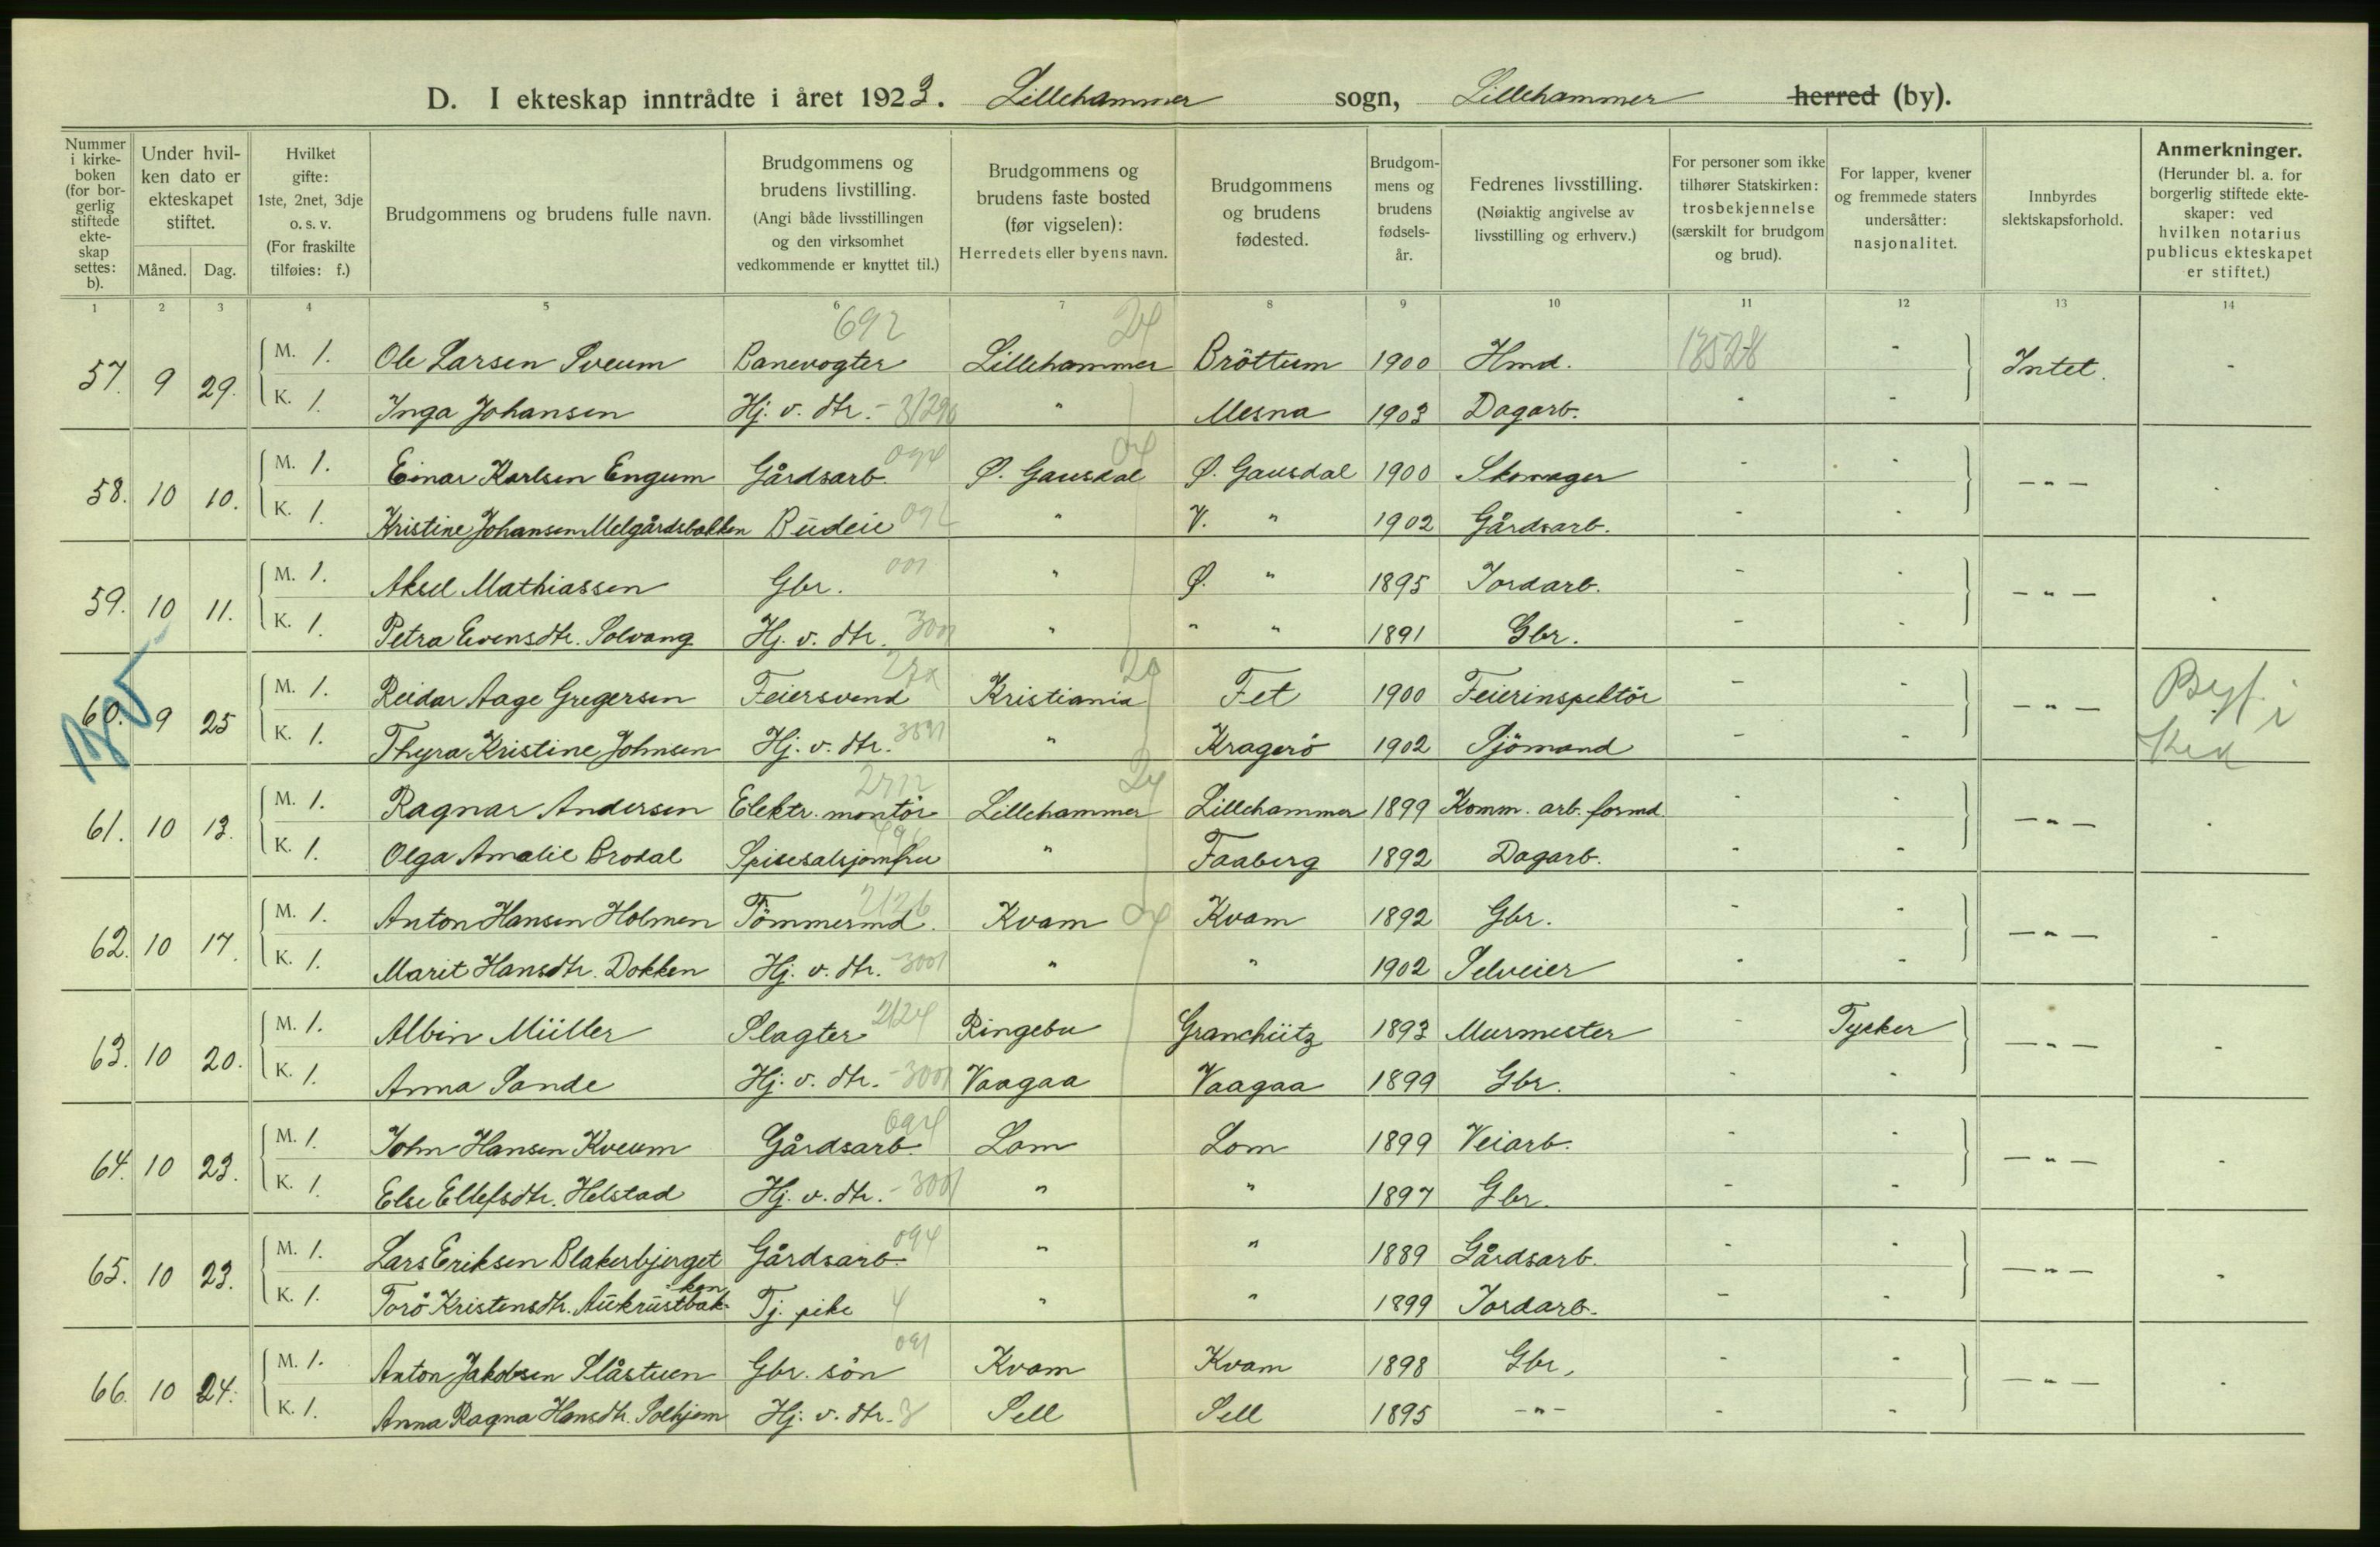 D. I ekteskap inntrådte i året 1923. Lillehammer sogn, Lillehammer herred (by).
Nummer i kirkeboken (for borgerlig stiftede ekteskap settes: b).
Under hvilken dato er ekteskapet stiftet.
Måned. Dag.
Hvilket gifte: 1ste, 2net, 3dje o. s. v. (For fraskilte tilføies: f.)
Brudgommens og brudens fulle navn.
Brudgommens og brudens livstilling. (Angi både livsstillingen og den virksomhet vedkommende er knyttet til.)
Brudgommens og brudens faste bosted (før vigselen): Herredets eller byens navn.
Brudgommens og brudens fødested.
Brudgommens og brudens fødselsår.
Fedrenes livsstilling. (Nøiaktig angivelse av livsstilling og erhverv.)
For personer som ikke tilhører Statskirken: trosbekjennelse (særskilt for brudgom og brud).
For lapper, kvener og fremmede staters undersåtter: nasjonalitet.
Innbyrdes slektskapsforhold.
Anmerkninger. (Herunder bl. a. for borgerlig stiftede ekteskaper: ved hvilken notarius publicus ekteskapet er stiftet.)
1 2 3 4 5 6 7 8 9 10 11 12 13 14
692 24
57. 9 29. M. 1. Ole Larsen Sveum Banevogter Lillehammer Bröttum 1900 Hmd. - Intet. -
K. 1. Inga Johansen Hj. v. dtr. - " Mesna 1903 Dagarb. - -
58. 10 10. M. 1. Einar Karlsen Engum Gårdsarb. Ø. Gausdal Ø. Gausdal 1900 Skomager - - — " — .
K. 1. Kristine Johansen Melgårdsbakken Budeie " V. " 1902 Gårdsarb. - -
59. 10 11. M. 1. Aksel Mathiassen Gbr. " Ø. " 1895 Jordarb. - - — " — .
K. 1. Petra Evensdtr. Solvang Hj. v. dtr. " " " 1891 Gbr. - -
60. 9 25 M. 1. Reidar Aage Gregersen Feiersvend Kristiania Fet 1900 Feierinspektör - - — " —
K. 1. Thyra Kristine Johnsen Hj. v. dtr. " Kragerö 1902 Sjömand - -
61. 10 13. M. 1. Ragnar Andersen Elektr. montör Lillehammer Lillehammer 1899 Komm. arb. formd. - - — " — .
K. 1. Olga Amalie Brodal Spisesalsjomfru " Faaberg 1892 Dagarb. - -
62. 10 17. M. 1. Anton Hansen Holmen Tömmermd. 2126 Kvam Kvam 1892 Gbr. - - — " — -
K. 1. Marit Hansdtr. Dokken Hj. v. dtr. - 3001 " " 1902 Selveier - -
63. 10 20. M. 1. Albin Müller Slagter 2124 Ringebu Granchütz 1893 Murmester - Tysker — " — -
K. 1. Anna Sande Hj. v. dtr. - 3001 Vaagaa Vaagaa 1899 Gbr. - -
64. 10 23. M. 1. John Hansen Kveum Gårdsarb. Lom Lom 1899 Veiarb. - - — " — -
K. 1. Else Ellefsdtr. Helstad Hj. v. dtr. - 3001 " " 1897 Gbr. - -
65. 10 23. M. 1. Lars Eriksen Blakerbjerget Gårdsarb. 094 " " 1889 Gårdsarb. - - — " — -
K. 1. Torö Kristensdtr. Aukrustbakken Tj. pike 4 " " 1899 Jordarb. - -
66. 10 24. M. 1. Anton Jakobsen Slåstuen Gbr. sön 091 Kvam Kvam 1898 Gbr. - - — " — .
K. 1. Anna Ragna Hansdtr. Solhjem Hj. v. dtr. 3 Sell Sell 1895 — " — - -